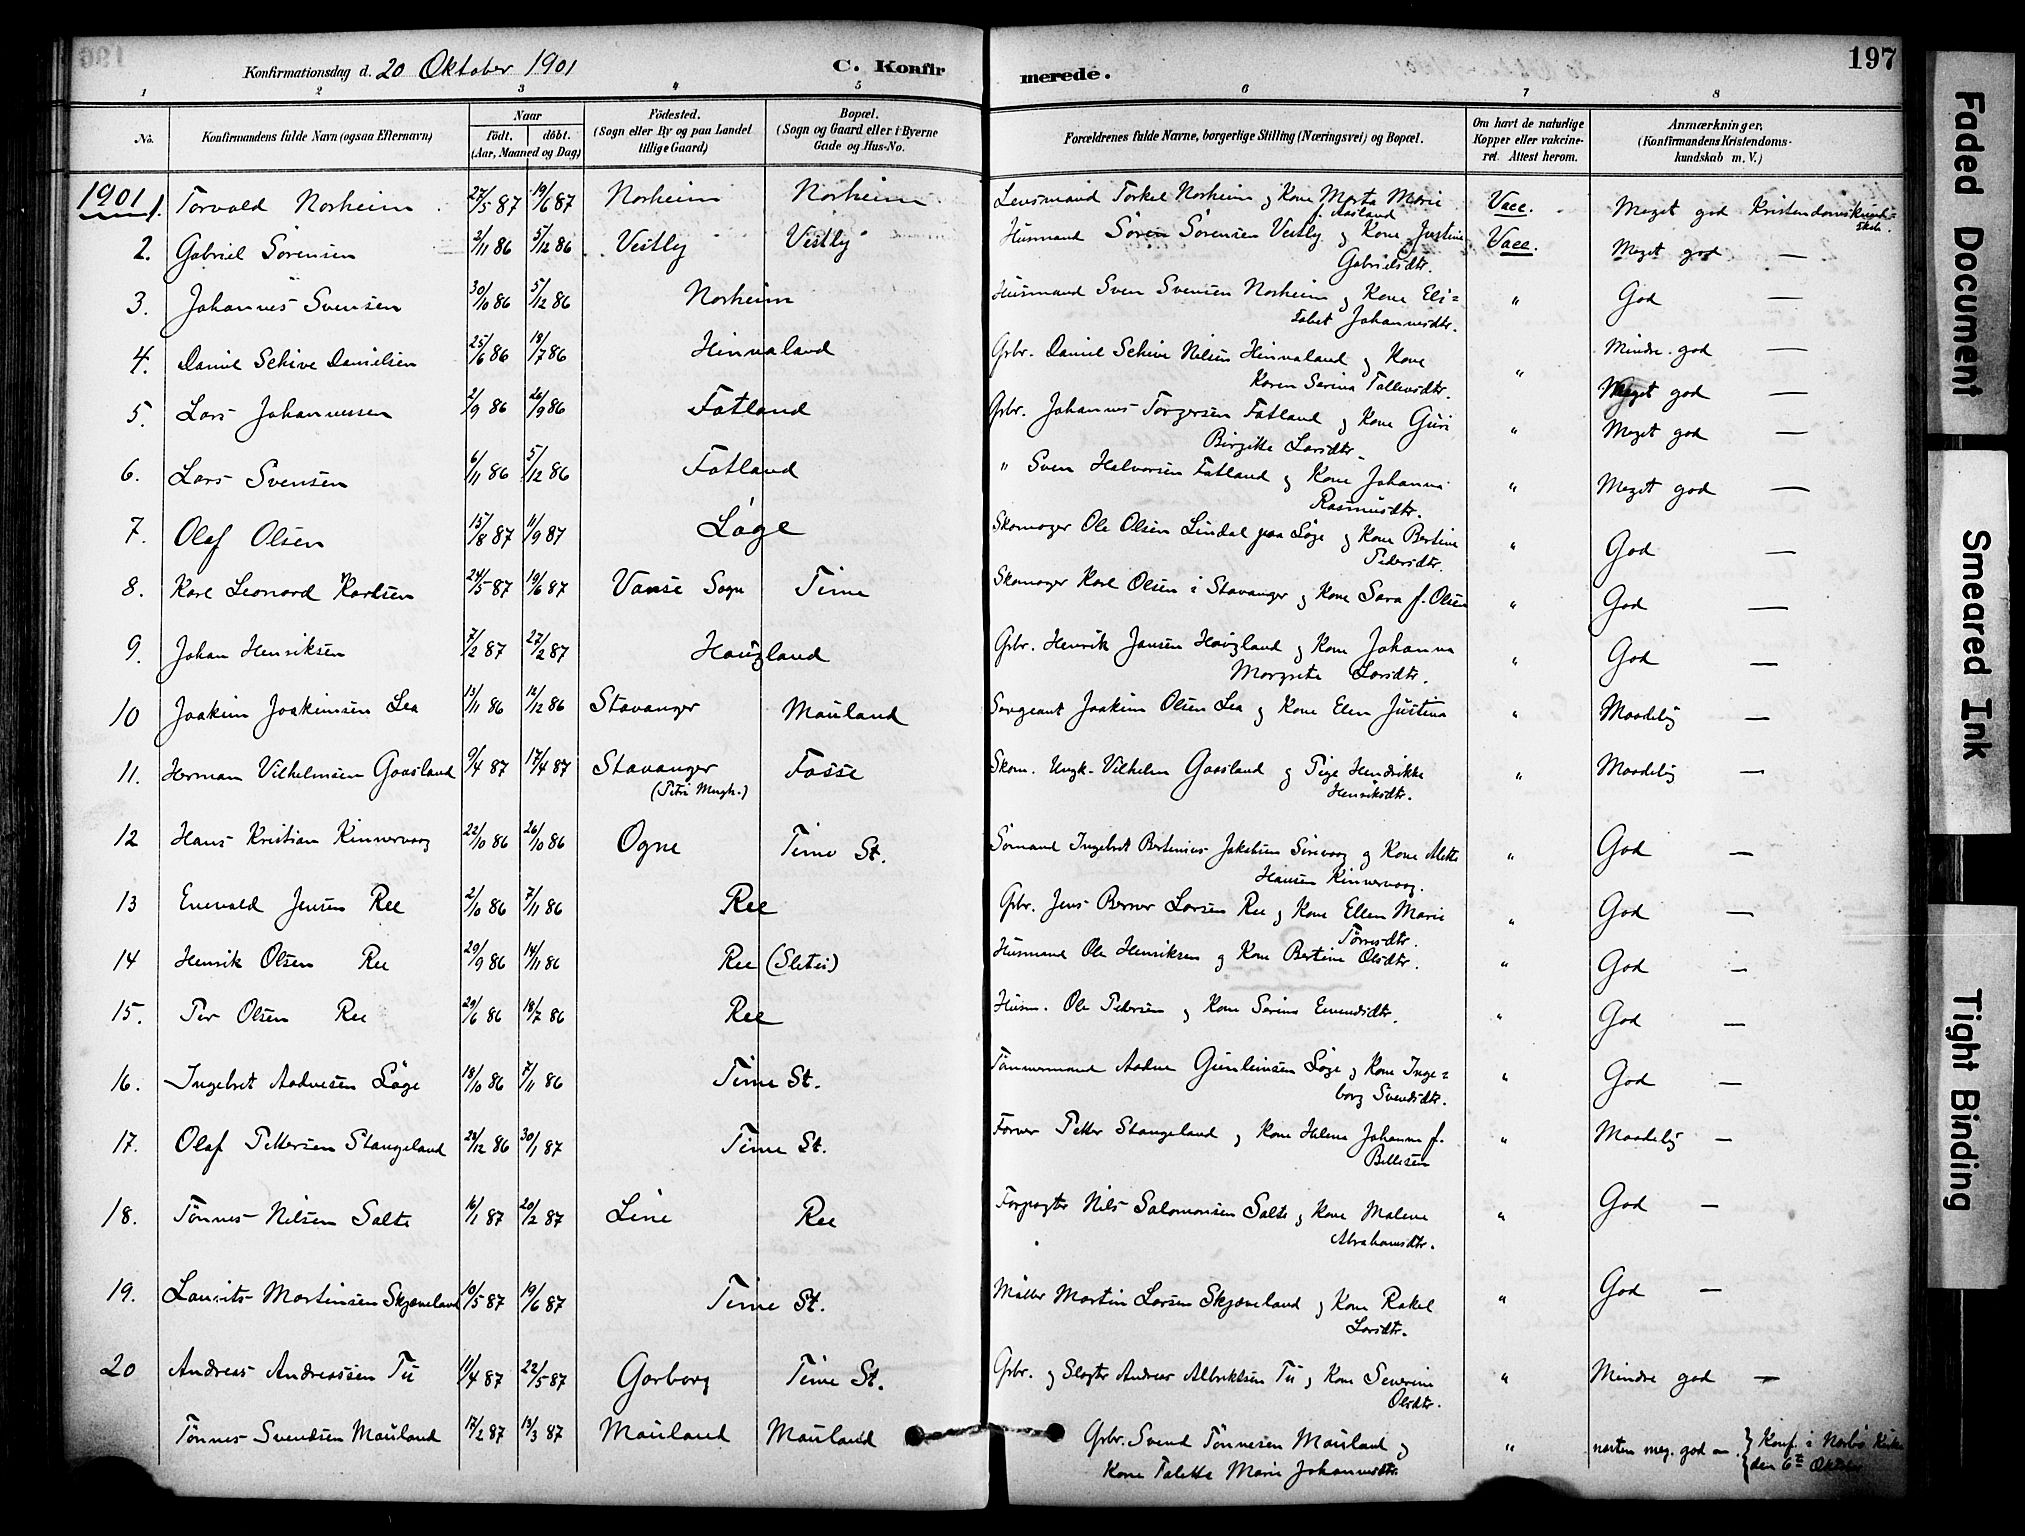 197
Konfirmationsdag d. 20 Oktober 1901 C. Konfirmerede.
1 2 3 4 5 6 7 8
No. Konfirmandens fulde Navn (ogsaa Efternavn) Naar født. døbt. (Aar, Maaned og Dag) Fødested. (Sogn eller By og paa Landet tillige Gaard) Bopæl. (Sogn og Gaard eller i Byerne Gade og Hus-No. Forældrenes fulde Navne, borgerlige Stilling (Næringsvei) og Bopæl. Om havt de naturlige Kopper eller vakcineret. Attest herom. Anmærkninger, (Konfirmandens Kristendomskundskab m. V.)
1901 1. Torvald Norheim 27/5 87 19/6 87 Norheim Norheim Lensmand Torkel Norheim og Kone Marta Marie f. Aasland Vacc. Meget god Kristendomskundskab.
2. Gabriel Sørensen 2/11 86 5/12 86 Vestly Vestly Husmand Søren Sørensen Vestly og Kone Justine Gabrielsdtr. Vacc. Meget god —
3. Johannes Svensen 30/10 86 5/12 86 Norheim Husmand Sven Svensen Norheim og Kone Elisabet Johannesdtr. " God —
4. Daniel Schive Danielsen 25/6 86 18/7 86 Hinnaland Gbr. Daniel Schive Nilsen Hinnaland og Kone Karen Serina Tollevsdtr. " Mindre god —
Meget god —
5. Lars Johannessen 2/9 86 26/9 86 Fotland Gbr. Johannes Torgersen Fotland og Kone Guri Birgitte Larsdtr. " Meget god —
6. Lars Svensen 6/11 86 5/12 86 Fotland " Sven Halvorsen Fotland og Kone Johanna Rasmusdtr. " Meget god —
7. Olaf Olsen 15/8 87 11/9 87 Løge Skomager Ole Olsen Lindal paa Løge og Kone Bertine Pedersdtr. " God —
8. Karl Leonard Karlsen 24/5 87 19/6 87 Vanse Sogn Time Skomager Karl Olsen i Stavanger og Kone Sara f. Olsen " God —
9. Johan Henriksen 7/2 87 27/2 87 Haugland Gbr. Henrik Jansen Haugland og Kone Johanna Margrete Larsdtr. " God —
10 Joakim Joakimsen Lea 13/11 86 12/12 86 Stavanger Mauland Sergeant Joakim Olsen Lea og Kone Elen Justina " Maadelig —
11. Herman Vilhelmsen Gaasland 9/4 87 17/4 87 Stavanger (Petri Mngh.) Fosse Skom. Ungk. Vilhelm Gaasland og Pige Hendrikke Henriksdtr. " Maadelig —
12 Hans Kristian Kinnervaag 22/10 86 26/10 86 Ogne Time St. Sømand Ingebret Bertinius Jakobsen Sirevaag og Kone Mette Hansen Kinnervaag. " God —
13 Enevald Jensen Ree 2/10 86 7/11 86 Ree Gbr. Jens Berner Larsen Ree og Kone Ellen Marie Tørresdtr. " God —
14 Henrik Olsen Ree 29/9 86 14/11 86 Ree (Sletti) Husmand Ole Henriksen og Kone Bertine Olsdtr. " God —
15. Per Olsen Ree 29/6 86 18/7 86 Ree Husm. Ole Pedersen og Kone Serine Eivendsdtr. " God —
16. Ingebret Aadnesen Løge 18/10 86 7/11 86 Time St. Tømmermand Aadne Gunleiksen Løge og Kone Ingeborg Svendsdtr. " God —
17. Olaf Pettersen Stangeland 28/12 86 30/1 87 Time St. Farver Petter Stangeland og Kone Helene Johanne f. Bellesen " Maadelig —
18. Tønnes Nilsen Salte 16/1 87 20/2 87 Line Ree Forpagter Nils Salomonsen Salte og Kone Malene Abrahamsdtr. " God —
19. Laurits Martinsen Skjæveland 10/5 87 19/6 87 Time St. Møller Martin Larsen Skjæveland og Kone Rakel Larsdtr. " God —
20 Andreas Andreassen Tu 11/4 87 22/5 87 Garborg Time St. Gbr. og Slagter Andreas Albriktsen Tu og Kone Severine Olsdtr. " Mindre god —
Tønnes Svendsen Mauland 17/2 87 13/3 87 Mauland Mauland Gbr. Svend Tønnesen Mauland og Kone Taletta Marie Johannesdtr. " næsten meg. god — Konf. i Nærbø Kirke den 6te Oktober
Faded Document
Smeared Ink
Tight Binding